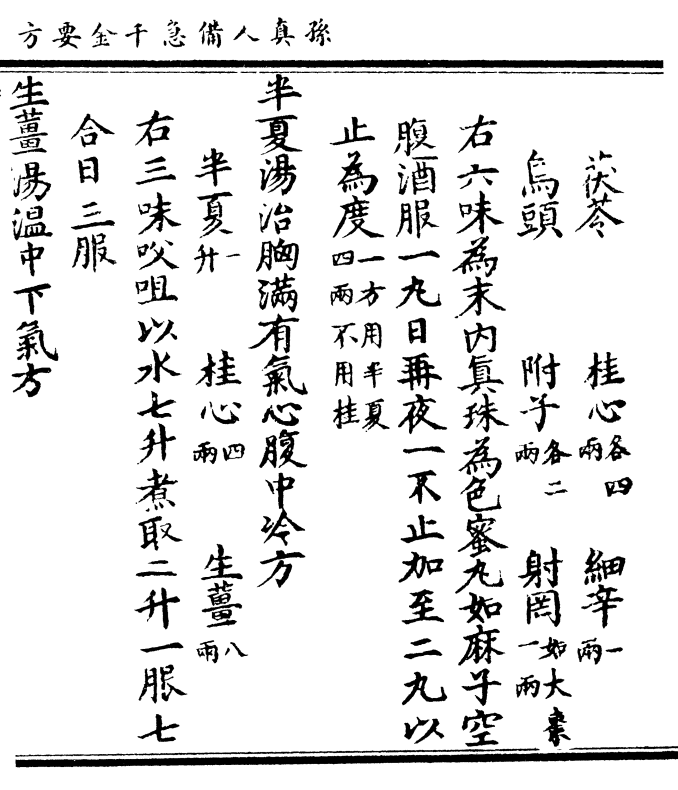 孫真人備急千金要方
茯苓 桂心各四兩 細辛一兩
烏頭 附子各二兩 射罔如大棗一兩
右六味為末內真珠為色蜜丸如麻子空
腹酒服一丸日再夜一不止加至二丸以
止為度一方用半夏四兩不用桂
半夏湯治胸滿有氣心腹中冷方
半夏一升 桂心四兩 生薑八兩
右三味㕮咀以水七升煮取二升一服七
合日三服
生薑湯溫中下氣方